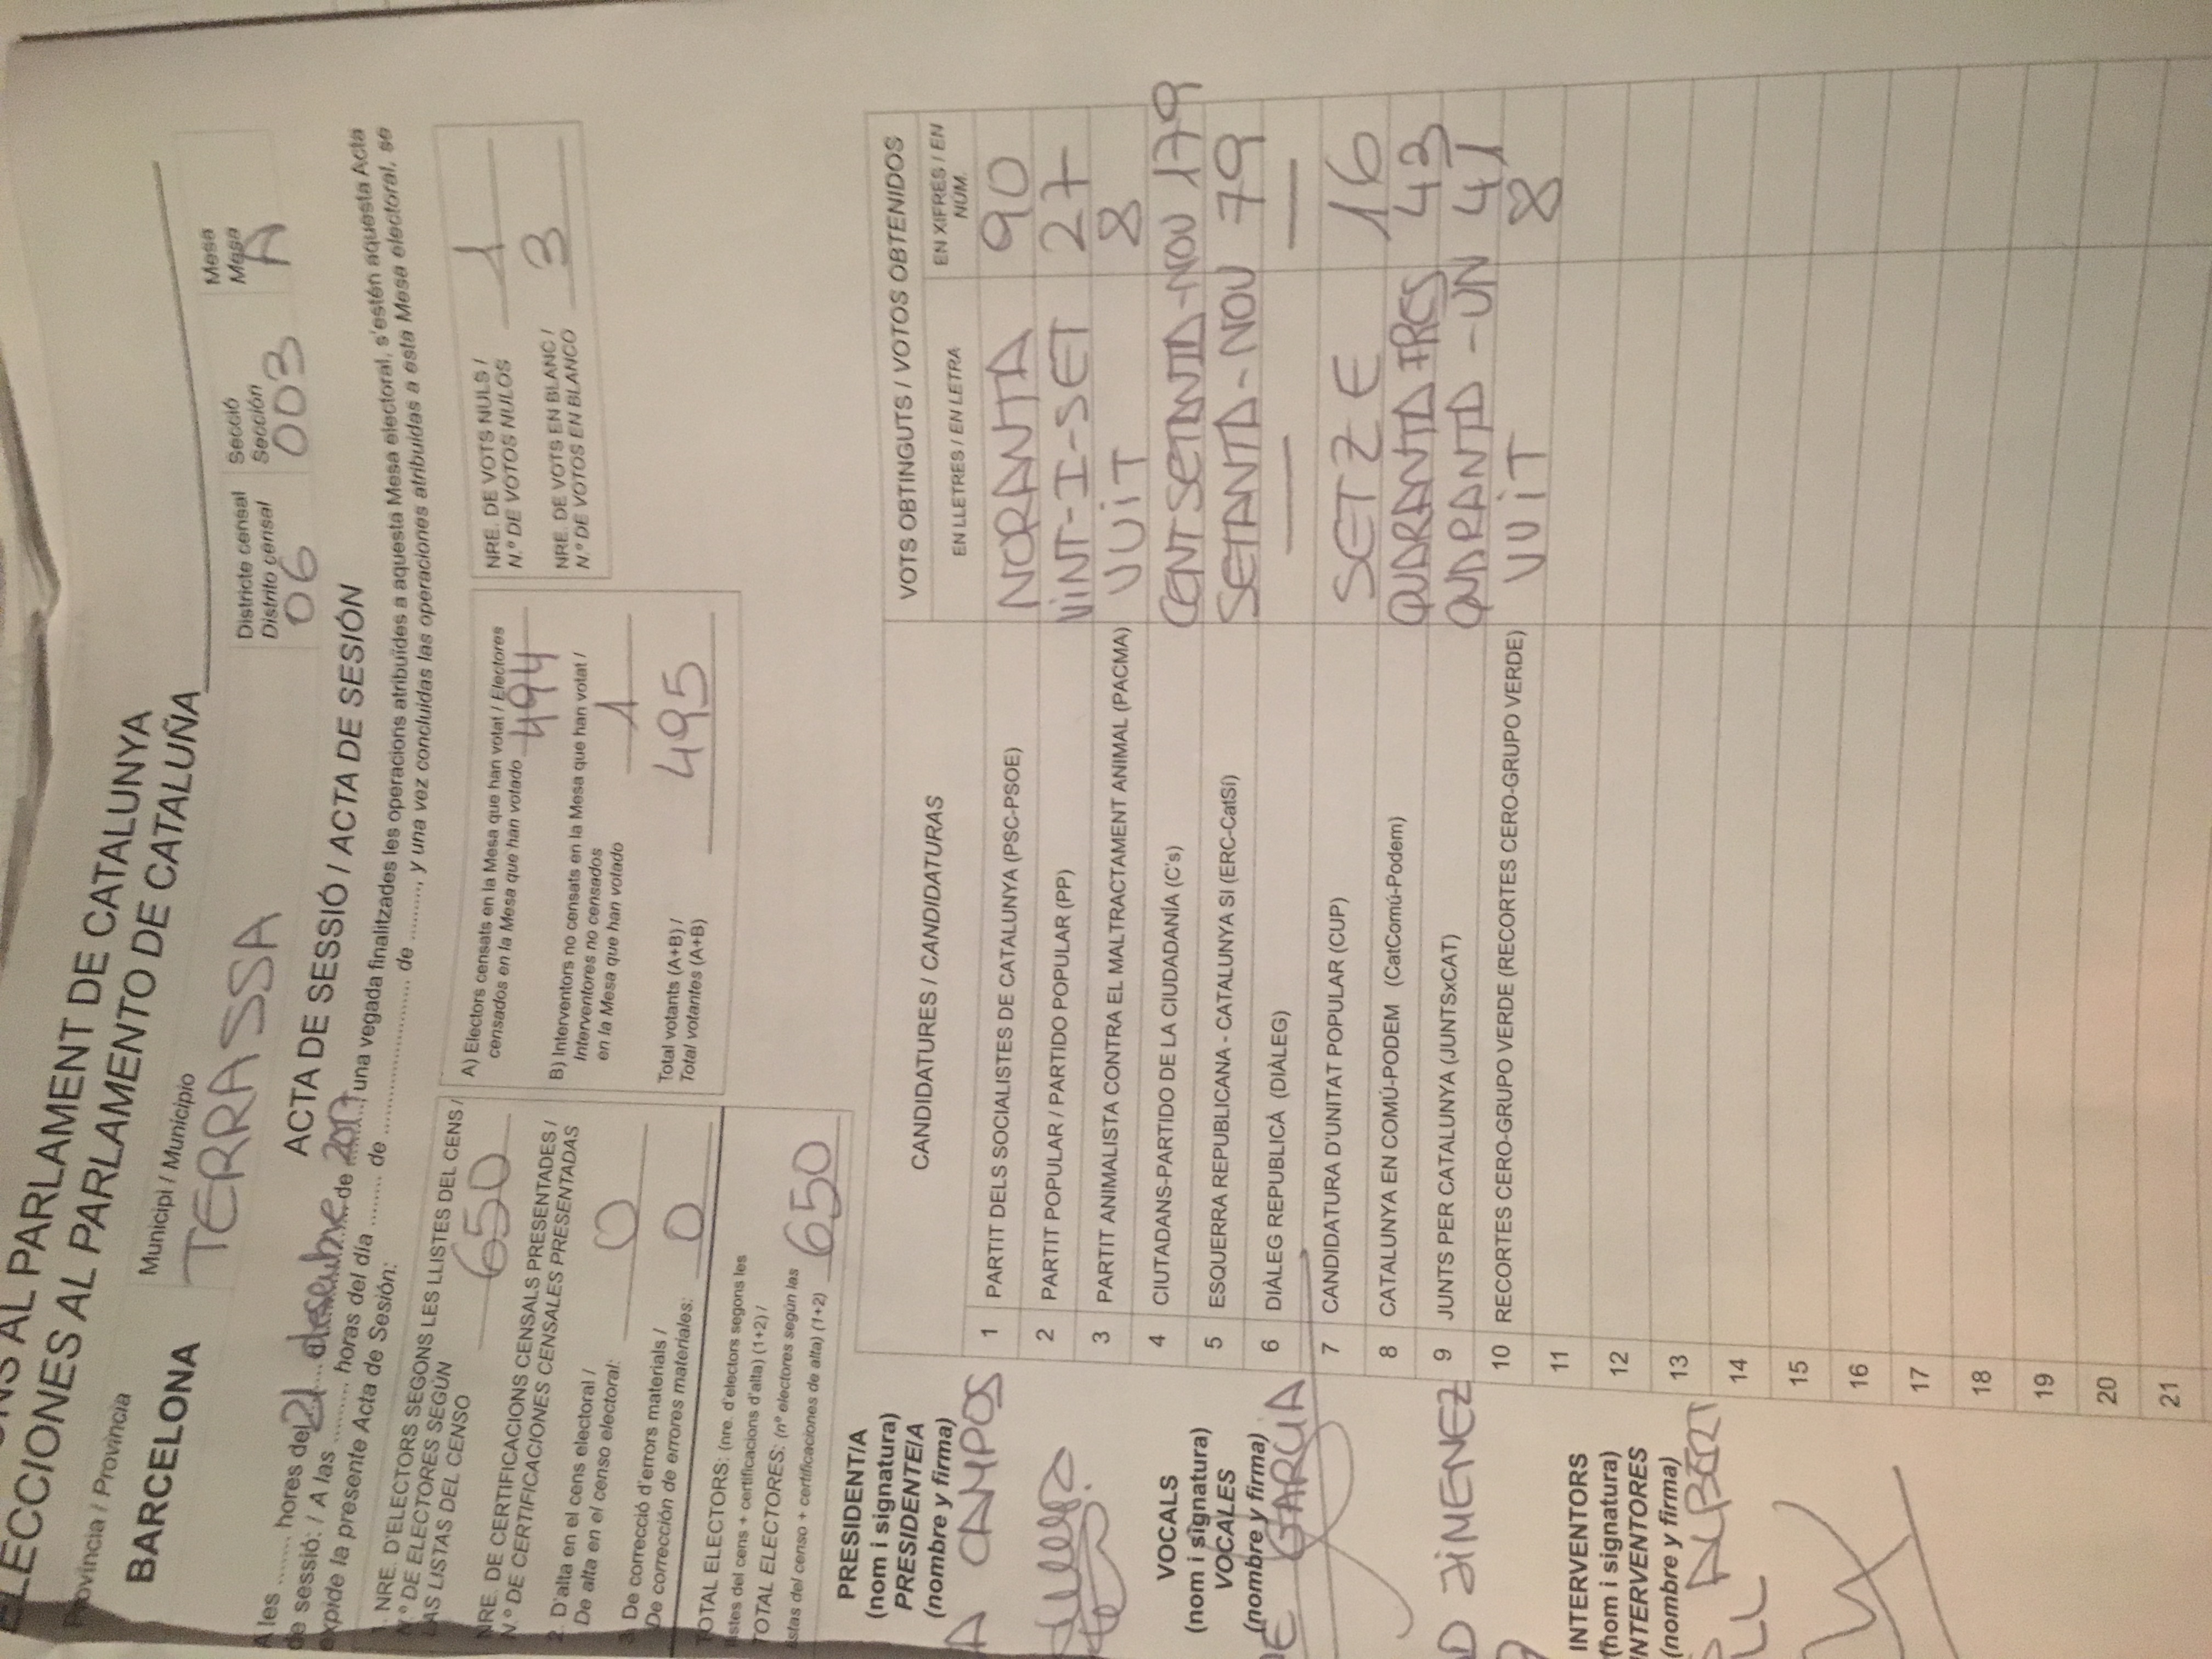 AL PARLAMENT DE CATALUNYA
ELECCIONES AL PARLAMENTO DE CATALUÑA
Província / Provincia
BARCELONA
Municipi / Municipio
TERRASSA
Districte censal
Distrito censal
06
Secció
Sección
003
Mesa
Mesa
A
ACTA DE SESSIÓ / ACTA DE SESIÓN
A les ........ hores del 21 d desembre de 2017, una vegada finalitzades les operacions atribuïdes a aquesta Mesa electoral, s'estén aquesta Acta
de sessió: / A las ......... horas del día ........ de ........................ de ........., y una vez concluidas las operaciones atribuidas a esta Mesa electoral, se
expide la presente Acta de Sesión:
1. NRE. D'ELECTORS SEGONS LES LLISTES DEL CENS /
N.º DE ELECTORES SEGÚN
LAS LISTAS DEL CENSO 650
NRE. DE CERTIFICACIONS CENSALS PRESENTADES /
N.º DE CERTIFICACIONES CENSALES PRESENTADAS
2. D'alta en el cens electoral /
De alta en el censo electoral: 0
3. De correcció d'errors materials /
De corrección de errores materiales: 0
TOTAL ELECTORS: (nre. d'electors segons les
llistes del cens + certificacions d'alta) (1+2) /
TOTAL ELECTORES: (nº electores según las
listas del censo + certificaciones de alta) (1+2) 650
A) Electors censats en la Mesa que han votat / Electores
censados en la Mesa que han votado 494
B) Interventors no censats en la Mesa que han votat /
Interventores no censados
en la Mesa que han votado 1
Total votants (A+B) /
Total votantes (A+B) 495
NRE. DE VOTS NULS /
N.º DE VOTOS NULOS 1
NRE. DE VOTS EN BLANC /
N.º DE VOTOS EN BLANCO 3
PRESIDENT/A
(nom i signatura)
PRESIDENTE/A
(nombre y firma)
A CAMPOS
VOCALS
(nom i signatura)
VOCALES
(nombre y firma)
E GARCIA
D JIMENEZ
INTERVENTORS
(nom i signatura)
INTERVENTORES
(nombre y firma)
S ALBERT
LL
CANDIDATURES / CANDIDATURAS
VOTS OBTINGUTS / VOTOS OBTENIDOS
EN LLETRES / EN LETRA
EN XIFRES / EN
NÚM.
1 PARTIT DELS SOCIALISTES DE CATALUNYA (PSC-PSOE) NORANTA 90
2 PARTIT POPULAR / PARTIDO POPULAR (PP) VINT-I-SET 27
3 PARTIT ANIMALISTA CONTRA EL MALTRACTAMENT ANIMAL (PACMA) VUIT 8
4 CIUTADANS-PARTIDO DE LA CIUDADANÍA (C's) CENT SETANTA-NOU 179
5 ESQUERRA REPUBLICANA - CATALUNYA SI (ERC-CatSí) SETANTA-NOU 79
6 DIÀLEG REPUBLICÀ (DIÀLEG) — —
7 CANDIDATURA D'UNITAT POPULAR (CUP) SETZE 16
8 CATALUNYA EN COMÚ-PODEM (CatComú-Podem) QUARANTA TRES 43
9 JUNTS PER CATALUNYA (JUNTSxCAT) QUARANTA-UN 41
10 RECORTES CERO-GRUPO VERDE (RECORTES CERO-GRUPO VERDE) VUIT 8
11
12
13
14
15
16
17
18
19
20
21